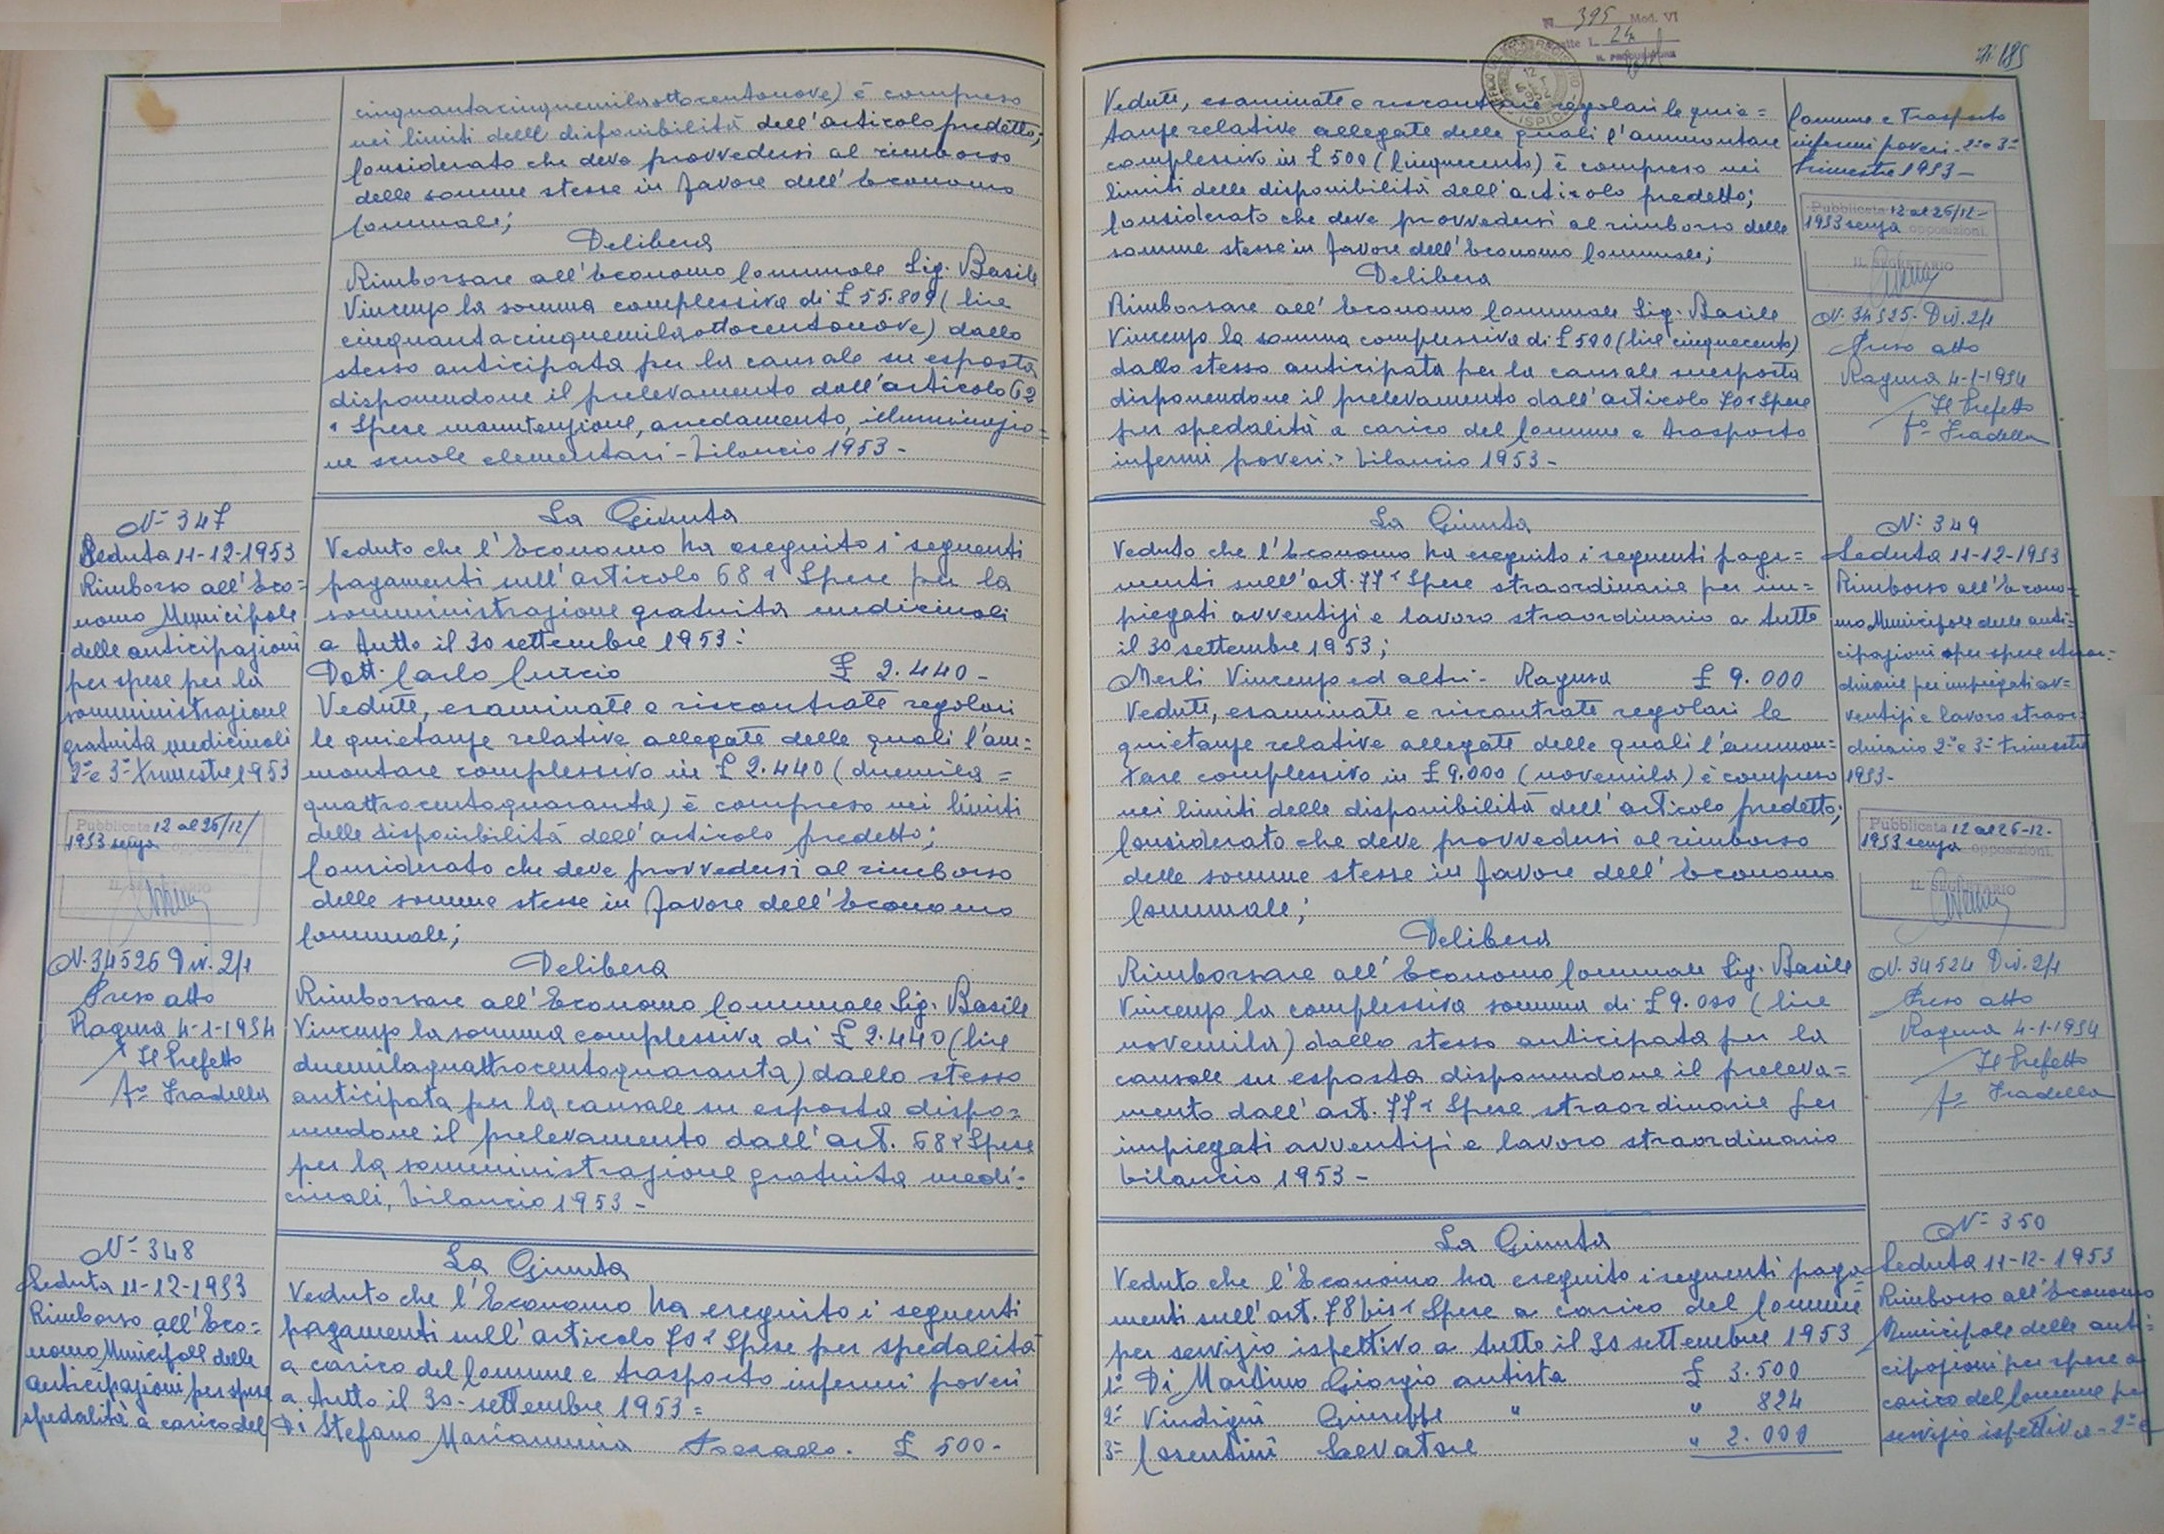 cinquantacinquemilaottocentonove) è compreso
nei limiti delle disponibilità dell'articolo predetto;
Considerato che deve provvedersi al rimborso
delle somme stesse in favore dell'Economo
Comunale;
Delibera
Rimborsare all'Economo Comunale Sig. Basile
Vincenzo la somma complessiva di £ 55.809 (lire
cinquantacinquemilaottocentonove) dallo
stesso anticipata per la causale su esposta
disponendone il prelevamento dall'articolo 62
" Spese manutenzione, arredamento, illuminazio=
ne scuole elementari - bilancio 1953 -
N° 347
Seduta 11-12-1953
Rimborso all'Eco=
nomo Municipale
delle anticipazioni
per spese per la
somministrazione
gratuita medicinali
2° e 3° trimestre 1953
Pubblicata 12 al 26/12/
1953 senza opposizioni
IL SEGRETARIO
N. 34526 Div. 2/1
Preso atto
Ragusa 4-1-1954
Il Prefetto
f° Fradella
La Giunta
Veduto che l'Economo ha eseguito i seguenti
pagamenti sull'articolo 68 " Spese per la
somministrazione gratuita medicinali
a tutto il 30 settembre 1953:
Dott. Carlo Curcio £ 2.440 -
Vedute, esaminate e riscontrate regolari
le quietanze relative allegate delle quali l'am=
montare complessivo in £ 2.440 (duemila=
quattrocentoquaranta) è compreso nei limiti
delle disponibilità dell'articolo predetto;
Considerato che deve provvedersi al rimborso
delle somme stesse in favore dell'Economo
Comunale;
Delibera
Rimborsare all'Economo Comunale Sig. Basile
Vincenzo la somma complessiva di £ 2.440 (lire
duemilaquattrocentoquaranta) dallo stesso
anticipata per la causale su esposta dispo=
nendone il prelevamento dall'art. 68 " Spese
per la somministrazione gratuita medi=
cinali, bilancio 1953 -
N° 348
Seduta 11-12-1953
Rimborso all'Eco=
nomo Municipale delle
anticipazioni per spese
spedalità a carico del
La Giunta
Veduto che l'Economo ha eseguito i seguenti
pagamenti sull'articolo 70 " Spese per spedalità
a carico del Comune e trasporto infermi poveri
a tutto il 30 settembre 1953 =
Di Stefano Mariannina £ 500 -
N. 395 Mod. VI
L. 24
185
Vedute, esaminate e riscontrate regolari le quie=
tanze relative allegate delle quali l'ammontare
complessivo in £ 500 (cinquecento) è compreso nei
limiti delle disponibilità dell'articolo predetto;
Considerato che deve provvedersi al rimborso delle
somme stesse in favore dell'Economo Comunale;
Delibera
Rimborsare all'Economo Comunale Sig. Basile
Vincenzo la somma complessiva di £ 500 (lire cinquecento)
dallo stesso anticipata per la causale suesposta
disponendone il prelevamento dall'articolo 70 " Spese
per spedalità a carico del Comune e trasporto
infermi poveri " bilancio 1953 -
Comune e Trasporto
infermi poveri - 2° e 3°
trimestre 1953 -
Pubblicata 12 al 26/12-
1953 senza opposizioni
IL SEGRETARIO
N. 34525 - Div. 2/1
Preso atto
Ragusa 4-1-1954
Il Prefetto
f° Fradella
La Giunta
Veduto che l'Economo ha eseguito i seguenti paga=
menti sull'art. 77 " Spese straordinarie per im=
piegati avventizi e lavoro straordinario a tutto
il 30 settembre 1953;
Merli Vincenzo ed altri - Ragusa £ 9.000
Vedute, esaminate e riscontrate regolari le
quietanze relative allegate delle quali l'ammon=
tare complessivo in £ 9.000 (novemila) è compreso
nei limiti delle disponibilità dell'articolo predetto;
Considerato che deve provvedersi al rimborso
delle somme stesse in favore dell'Economo
Comunale;
Delibera
Rimborsare all'Economo Comunale Sig. Basile
Vincenzo la complessiva somma di £ 9.000 (lire
novemila) dallo stesso anticipata per la
causale su esposta disponendone il preleva=
mento dall'art. 77 " Spese straordinarie per
impiegati avventizi e lavoro straordinario
bilancio 1953 -
N° 349
Seduta 11-12-1953
Rimborso all'Econo=
mo Municipale delle anti=
cipazioni per spese straor=
dinarie per impiegati av=
ventizi e lavoro straor=
dinario 2° e 3° trimestre
1953 -
Pubblicata 12 al 26-12-
1953 senza opposizioni
IL SEGRETARIO
N. 34524 Div. 2/1
Preso atto
Ragusa 4-1-1954
Il Prefetto
f° Fradella
La Giunta
Veduto che l'Economo ha eseguito i seguenti paga=
menti sull'art. 78 bis " Spese a carico del Comune
per servizio ispettivo a tutto il 30 settembre 1953
1° Di Martino Giorgio autista £ 3.500
2° Vindigni Giuseppe " " 824
3° Cosentini Salvatore " 2.000
N° 350
Seduta 11-12-1953
Rimborso all'Economo
Municipale delle anti=
cipazioni per spese a
carico del Comune per
servizio ispettivo - 2° e